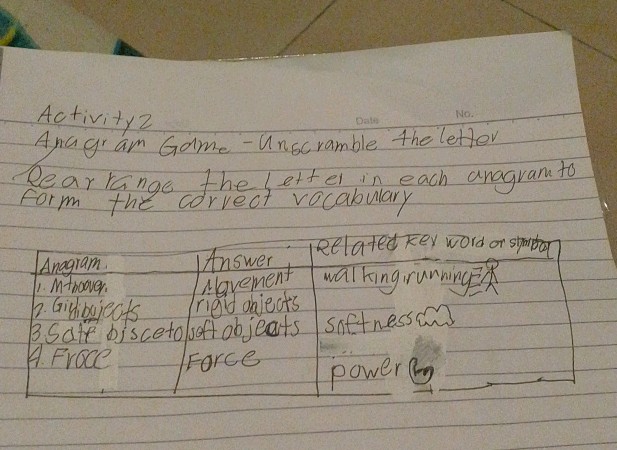 Date No.
Activity 2
Anagram Game - Unscramble the letter
Rearrange the letter in each anagram to
form the correct vocabulary
Anagram. Answer Related key word or symbol
1. Movement walking, running
2. rigid objects
3. Safe bisceto soft objects softness
4. Froce Force power